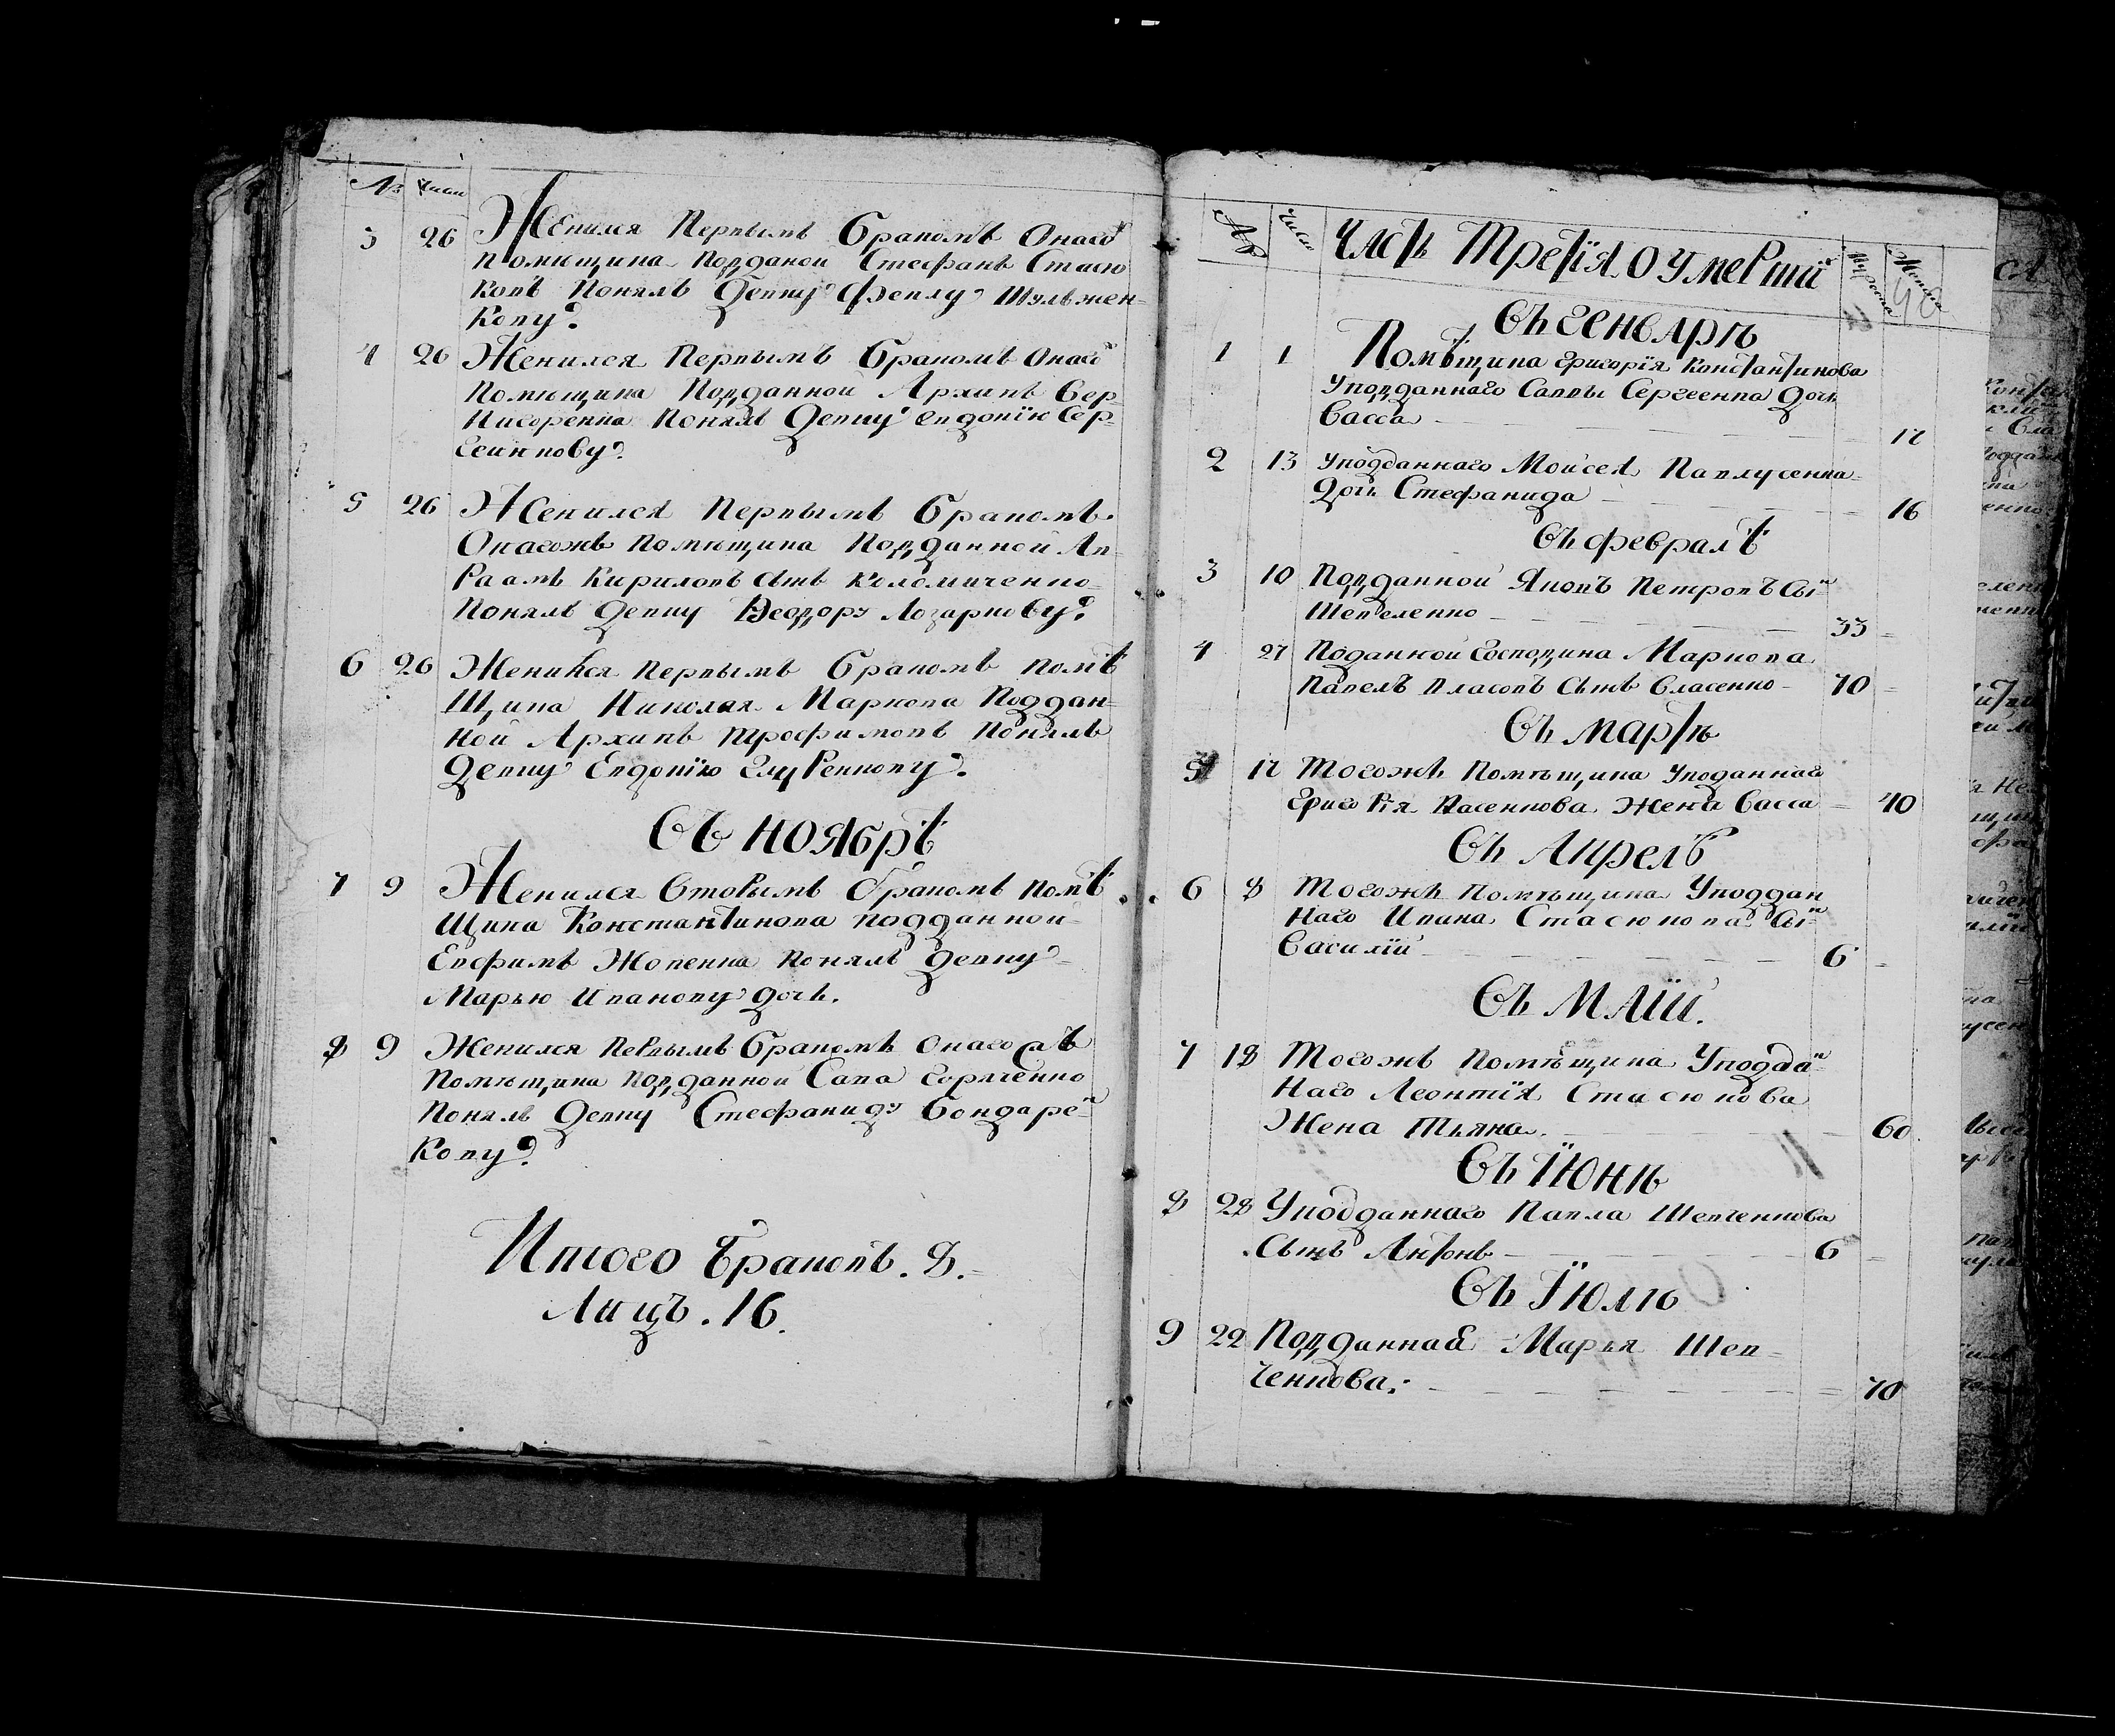 № Число
3 26 Женился Первымъ бракомъ Онаго
помѣщика подданой Стефанъ Стасю
ковъ понялъ Девку Феклу Шульжен-
кову.
4 26 Женился первымъ бракомъ Онаго
помѣщика подданной Архипъ
понялъ Девку Евдокїю Сер-
5 26 Женился первымъ бракомъ
Онагожъ помѣщика подданной Ав-
раамъ Кириловъ сынъ Коломиченко
понялъ девку Феодору Лазаркову.
6 26 Женился первымъ бракомъ помѣ
щика Николая Маркова поддан-
ной Архипъ Трофимовъ понялъ
Девку Евдокїю
Съ ноябрѣ
7 9 Женился вторымъ бракомъ помѣ
щика Константинова подданной
Евфимъ понялъ девку
Марью Иванову дочь.
8 9 Женился первымъ бракомъ онаго
помѣщика подданной Сава Горяченко
понялъ Девку Стефаниду Бондарен-
кову.
Итого браковъ. 8.
Лицъ. 16.
№ Число Часть Третїя О Умерши
Съ Генварѣ
1 1 Помѣщика Григорїя Константинова
Уподданнаго Саввы Сергеенка дочь
Васса 17
2 13 Уподданнаго Моисея Павлусенка
Дочь Стефанида 16
Съ февралѣ
3 10 Подданной Яковъ Петровъ Сын
Шепеленко 33
4 27 Поданной Господина Маркова
Павелъ Власовъ сынъ Власенко 70
Съ мартѣ
5 17 Тогожъ Помѣщика Уподаннаго
Григорїя Жена Васса 40
Съ Апрелѣ
6 8 Тогожъ Помѣщика Уподдан
наго Ивана Стасюкова Сын
Василїй 6
Съ Маїи.
7 18 Тогожъ Помѣщика Уподдан
наго Леонтїя Стасюкова
Жена Тьяна. 60.
Съ Їюнѣ
8 28 Уподданнаго Павла Шевченкова
Сынъ Антонъ 6
Съ Їюлѣ
9 22 Подданная Марья Шев-
ченкова. 70